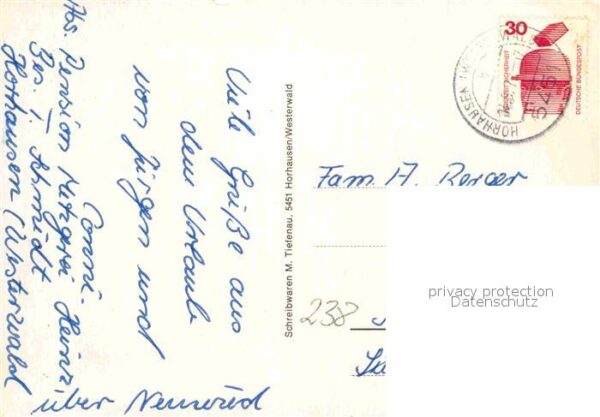 Viele Grüße aus
dem Urlaub
von Jürgen und
Conni.
Abs. Pension Metzgerei Heinz,
Bes. I. Schmidt
Horhausen (Westerwald
über Neuwied
Schreibwaren M. Tiefenau, 5451 Horhausen/Westerwald
30
DEUTSCHE BUNDESPOST
HORHAUSEN
545
Fam. A. Berger
238
privacy protection
Datenschutz